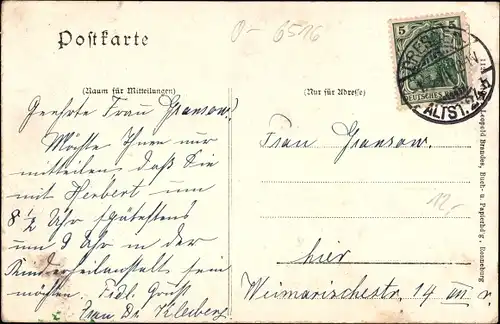 Postkarte
0-6516
(Raum für Mitteilungen)
(Nur für Adresse)
5 5
DEUTSCHES REICH
DRESDEN
ALTST.
Geehrte Frau Gransow!
Möchte Ihnen nur
mitteilen daß Sie
mit Herbert um
8 1/2 Uhr spätestens
um 9 Uhr in der
Kinderheilanstalt sein
möchten. Frdl. Gruß
Frau Dr. Kleiberg
Frau Gransow.
12,-
hier
Weimarischestr. 14 III r.
Leopold Brandes, Buch- u. Papierhdlg., Ronneburg